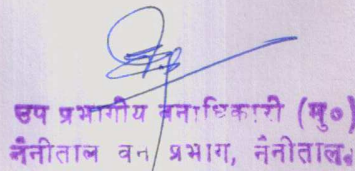 उप प्रभागीय वनाधिकारी (मु०)
नैनीताल वन प्रभाग, नैनीताल।